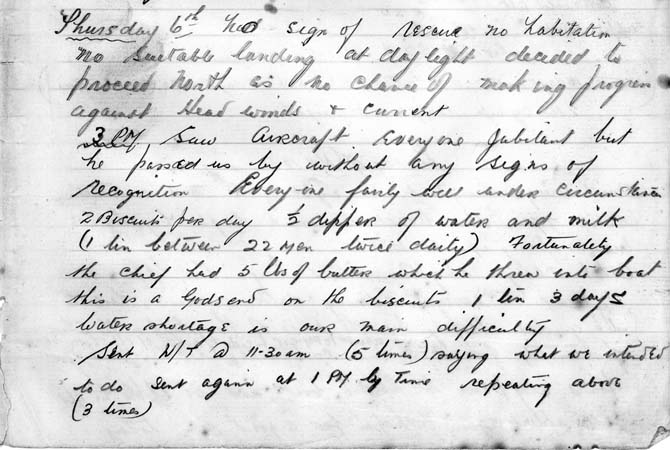 Thursday 6th No sign of rescue no habitation
no suitable landing at daylight decided to
proceed North as no chance of making progress
against Head winds & current
3 PM Saw Aircraft Everyone Jubilant but
he passed us by without any signs of
recognition Every-one fairly well under circumstances
2 Biscuits per day ½ dipper of water and milk
(1 tin between 22 men twice daily) Fortunately
the chief had 5 lbs of butter which he threw into boat
this is a Godsend on the biscuits 1 tin 3 days
Water shortage is our main difficulty
Sent W/T @ 11-30am (5 times) saying what we intended
to do sent again at 1 PM by Time repeating above
(3 times)